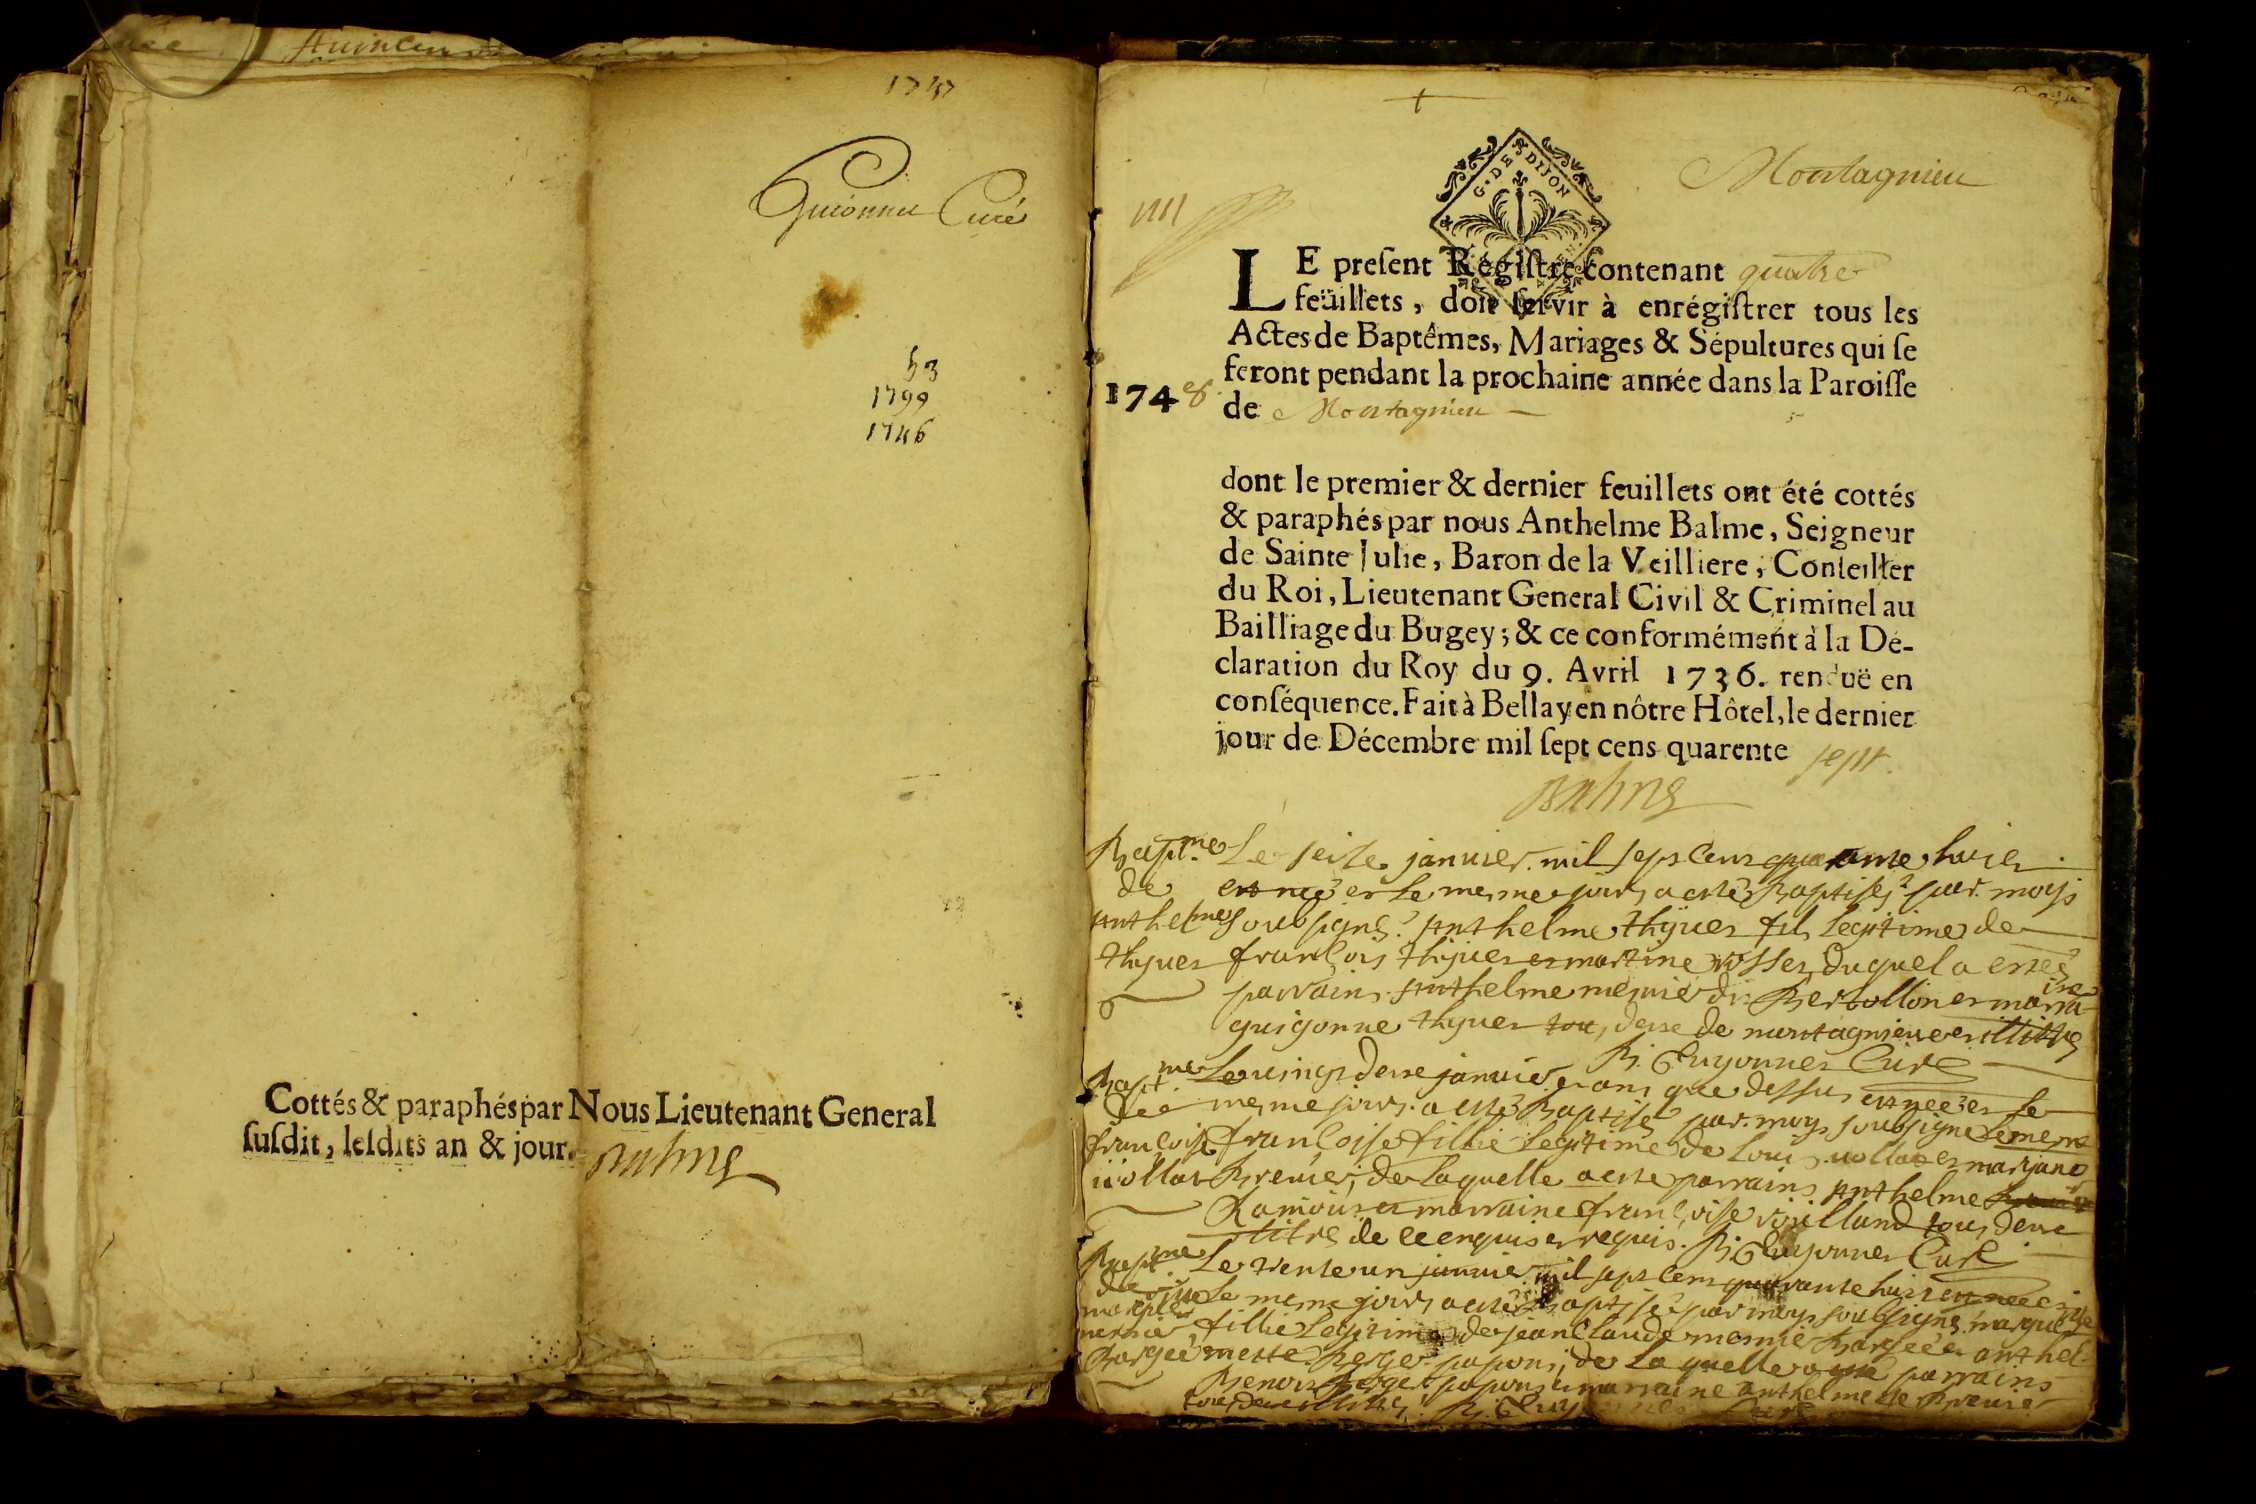 1747
Guionnet Curé
53
1799
1746
Cottés & paraphés par Nous Lieutenant General
susdit, lesdits an & jour. Balme
Montagnieu
G. DE DIJON
LE present Registre contenant quatre
feüillets, doit servir à enrégistrer tous les
Actes de Baptêmes, Mariages & Sépultures qui se
feront pendant la prochaine année dans la Paroisse
1748
de Montagnieu
dont le premier & dernier feuillets ont été cottés
& paraphés par nous Anthelme Balme, Seigneur
de Sainte Julie, Baron de la Veilliere, Conseiller
du Roi, Lieutenant General Civil & Criminel au
Bailliage du Bugey; & ce conformément à la Dé-
claration du Roy du 9. Avril 1736. renduë en
conséquence. Fait à Bellay en nôtre Hôtel, le dernier
jour de Décembre mil sept cens quarente sept.
Balme
Bapt.me Le seize janvier mil sept cens quarante huict
de est né et le meme jour a esté Baptisé par moy
Anthelme soubsigné Anthelme thyuet fil legitime de
thyuet françois thyuet et martine rosset, duquel a estée
parrain Anthelme et marraine
guigonne thyuet tou deue de montagnieu et illitré
B. Guyonnet Curé
Bapt.me Le vingt deue janvier et an que dessus est née et le
de meme jour a esté Baptisé par moy soubsigné
françoise françoise fillie legitime de Louis vollat et
vollat de laquelle a esté parrain Anthelme
Ramoux et marraine françoise tou deue
illitré de ce enquis et requis. B. Guyonnet Curé
Bapt.me Le trente un janvier mil sept cens quarante huict est née et
de le meme jour a esté Baptisé par moy soubsigné
fillie Legitime de jean Claude et anthel-
mette Berger de laquelle a esté parrain
Benoit Berger et marraine anthelmette
tou deue illitré B. Guyonnet Curé